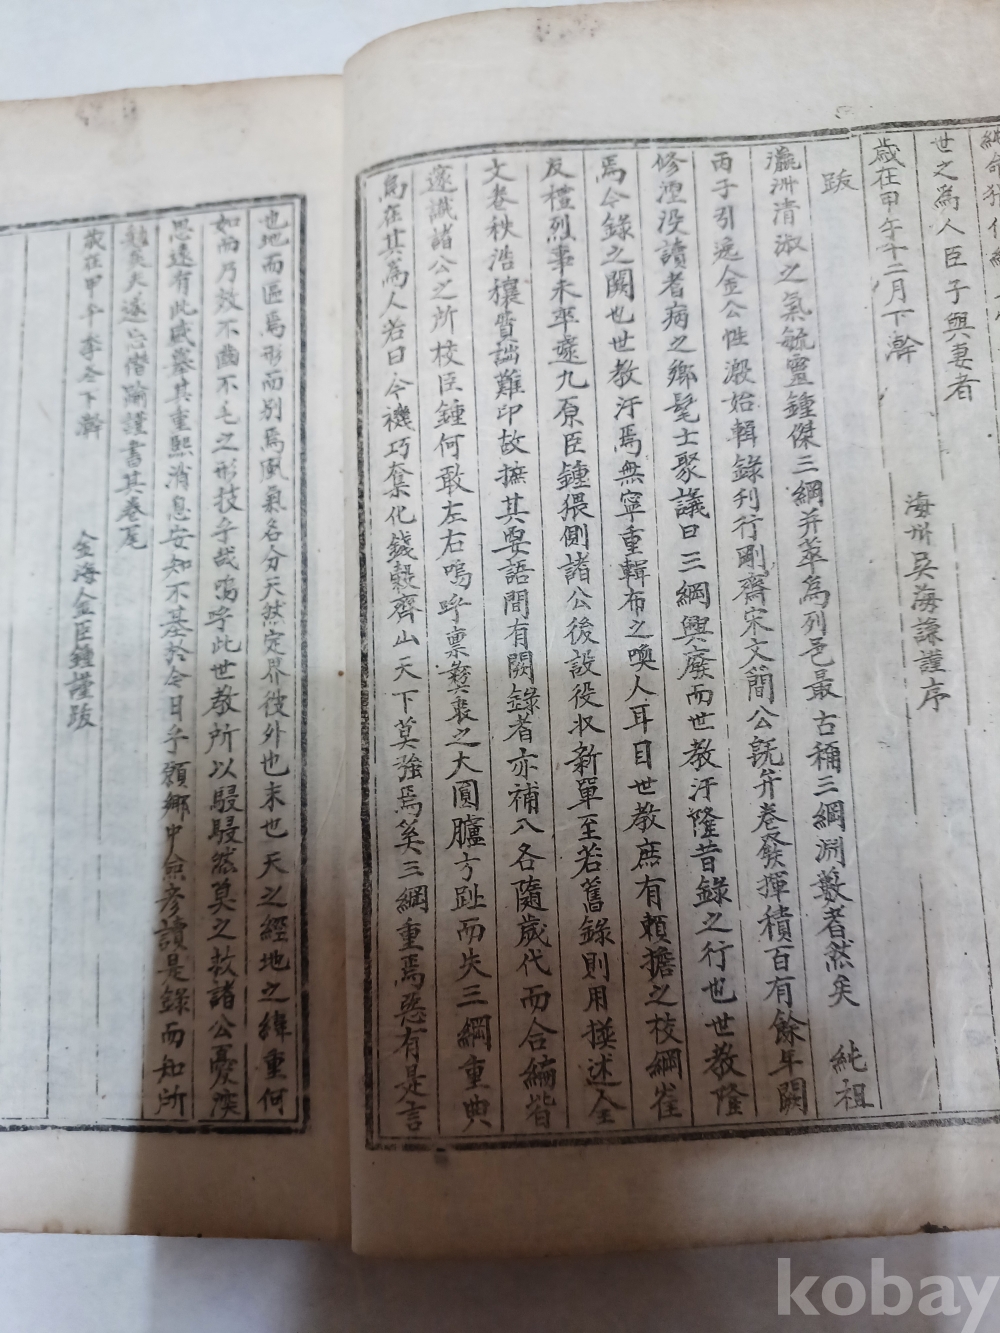 世之爲人臣子與妻者
歲在甲午十二月下澣 海州吳海謙謹序
跋
瀛洲淸淑之氣毓靈鍾傑三綱幷萃爲列邑最古稱三綱淵藪者然矣 純祖
丙子引逸金公性澱始輯錄刋行剛齋宋文簡公旣弁卷發揮積百有餘年闕
修湮沒讀者病之鄕髦士聚議曰三綱興廢而世敎汙隆昔錄之行也世敎隆
焉今錄之闕也世敎汙焉無寧重輯布之喚人耳目世敎庶有賴擔之校綱崔
友禮烈事未卒遽九原臣鍾猥側諸公後設役收新單至若舊錄則用撰述全
文卷秩浩穰貲詘難印故摭其要語間有闕錄者亦補入各隨歲代而合編皆
遂識諸公之所校臣鍾何敢左右嗚呼稟彜衷之大圓臚方趾而失三綱重典
烏在其爲人若曰今機巧奪化錢穀齊山天下莫强焉奚三綱重焉惡有是言
也地而區焉形而別焉風氣各分天然定界彼外也末也天之經地之緯重何
如而乃效不齒不毛之形技乎哉嗚呼此世敎所以駸駸然莫之救諸公憂深
思遠有此盛擧其重熙消息安知不基於今日乎領鄕中僉彦讀是錄而知所
勉矣夫遂忘僭踰謹書其卷尾
歲在甲午季冬下澣 金海金臣鍾謹跋
kobay